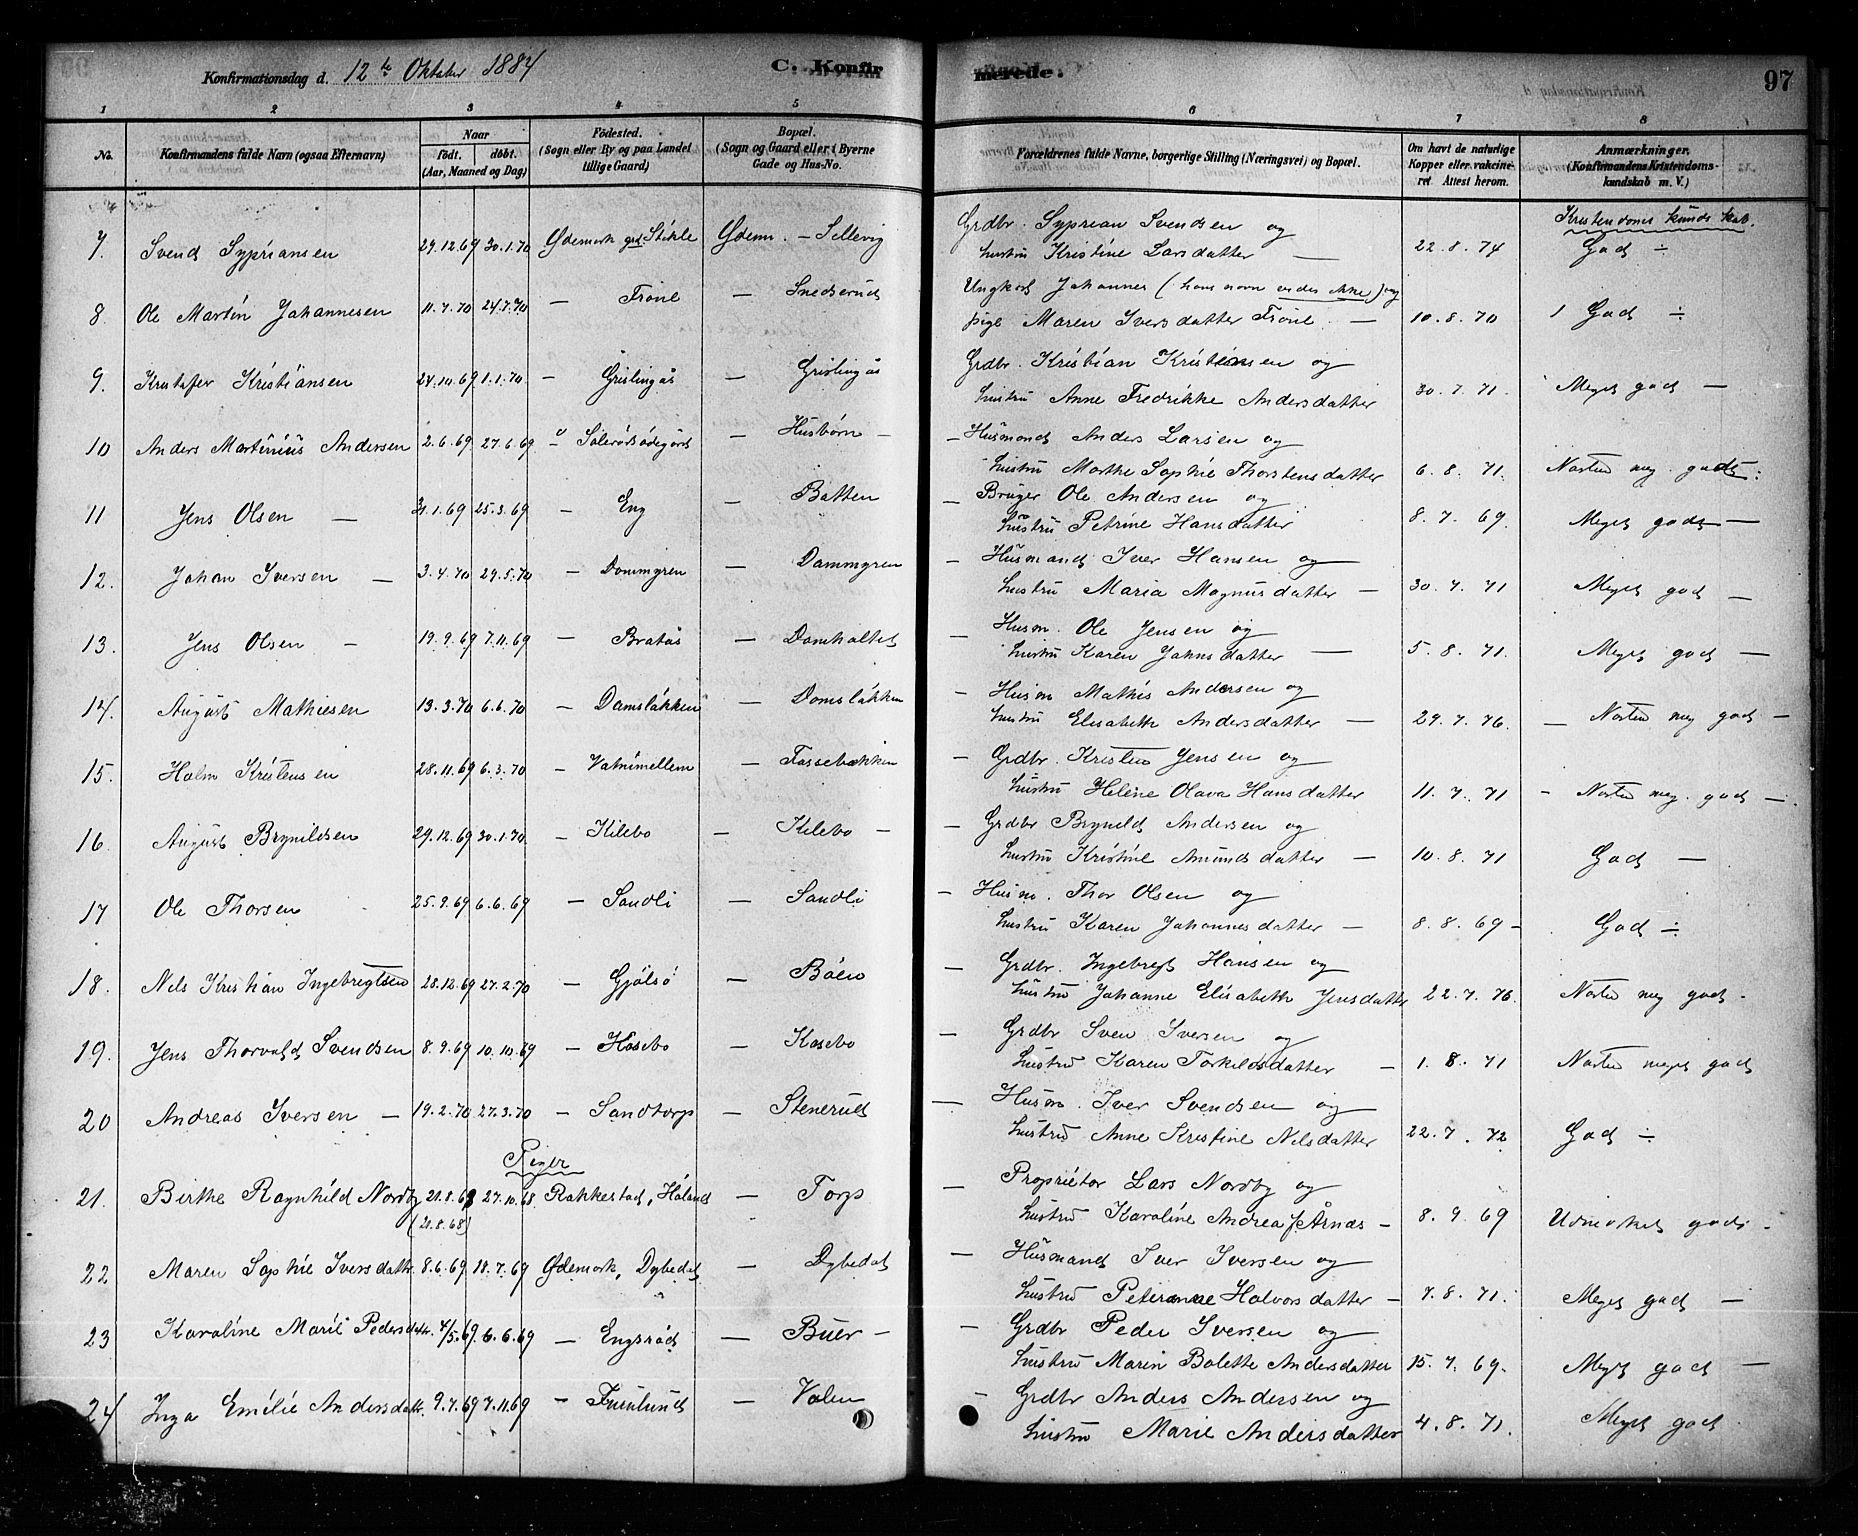 Konfirmationsdag d. 12te Oktober 1884 C. Konfirmerede. 97
1 2 3 4 5 6 7 8
No.
Konfirmandens fulde Navn (ogsaa Efternavn)
Naar
født. døbt.
(Aar, Maaned og Dag)
Fødested.
(Sogn eller By og paa Landet
tillige Gaard)
Bopæl.
(Sogn og Gaard eller i Byerne
Gade og Hus-No.
Forældrenes fulde Navne, borgerlige Stilling (Næringsvei) og Bopæl.
Om havt de naturlige
Kopper eller vakcine-
ret Attest herom.
Anmærkninger.
(Konfirmandens Kristendoms-
kundskab m. V.)
Kristendoms kundskab.
7. Svend Sypriansen 29.12.69 30.1.70 Ødemark grd. Stikle Ødem. — Sellevig Grdbr. Syprian Svendsen og
hustru Kristine Larsdatter — 22.8.74 God ÷
8 Ole Martin Johannesen 11.7.70 24.7.70 — Trone — Snedserud Ungkarl Johannes (hans navn vides ikke) og
pige Maren Iversdatter Trone — 10.8.70 1 God ÷
9. Kristofer Kristiansen 24.10.69 1.1.70 — Grislingås — Grislingås Grdbr. Kristian Kristiansen og
hustru Anne Fredrikke Andersdatter 30.7.71 Meget god —
10 Anders Martinius Andersen 2.6.69 27.6.69 — Solerødsødegård — Husbørn — — Husmand Anders Larsen og
hustru Marthe Sophie Thorstensdatter 6.8.71. Næsten meg. god
11 Jens Olsen — 31.1.69 25.3.69 — Eng — Botten — Bruger Ole Andersen og
hustru Petrine Hansdatter 8.7.69. Meget god —
12. Johan Iversen — 3.4.70 29.5.70 — Dammyren — Dammyren — Husmand Iver Hansen og
hustru Maria Magnusdatter — 30.7.71 Meget god —
13. Jens Olsen — 19.9.69 7.11.69 — Bratås — Damholtet — Husm. Ole Jensen og
hustru Karen Johnsdatter — 5.8.71. Meget god —
14. August Mathiesen 13.3.70 6.6.70 — Damsløkken — Damsløkken — Husm Mathis Andersen og
hustru Elisabeth Andersdatter — 29.7.76. — Næsten meg god —
15. Holm Kristensen 28.11.69 6.3.70 — Vatnimellem — Fossebækken — Grdbr. Kristen Jensen og
hustru Helene Olava Hansdatter 11.7.71 — Næsten meg. god —
16 August Brynildsen 29.12.69 30.1.70 — Kilebo — Kilebo — — Grdbr Brynild Andersen og
hustru Kristine Amundsdatter — 10.8.71 God —
17 Ole Thorsen 25.9.69 6.6.69 — Sandli — Sandli — Husm. Thor Olsen og
hustru Karen Johannesdatter — 8.8.69 — God ÷
18. Nels Kristian Ingebregtsen 28.12.69 27.2.70 — Gjølsø — Bøen — Grdbr. Ingebregt Hansen og
hustru Johanne Elisabeth Jensdatter 22.7.76. Næsten meg god —
19. Jens Thorvald Svendsen 8.9.69 10.10.69 — Kosebo — Kosebo — Grdbr Sven Iversen og
hustru Karen Torkildsdatter — 1.8.71 Næsten meget god
20 Andreas Iversen — 19.2.70 27.3.70 — Sandtorp — Stenerud — Husm. Iver Svendsen og
hustru Anne Kristine Nilsdatter 22.7.72 God ÷
Piger
21. Birthe Ragnhild Nordby 21.8.68 27.10.68 Rakkestad, Høland — Torp — Proprietær Lars Nordby og
(21.8.68) hustru Karoline Andrea f. Årnæs — 8.9.69 Udmærket god —
22 Maren Sophie Iversdatt. 8.6.69 18.7.69 Ødemark, Dybedal — Dybedal — Husmand Iver Iversen og
hustru Peteranne Halvorsdatter — 7.8.71. Meget god —
23 Karoline Marie Pedersdatt. 4/5.69 6.6.69 — Engsrød — Buer — — Grdbr Peder Iversen og
hustru Marin Bolette Andersdatter 15.7.69. Meget god —
24 Inga Emilie Andersdatt. 9.7.69 7.11.69 — Furulund — Volen — Grdbr Anders Andersen og
hustru Marie Andersdatter 4.8.71. Meget god